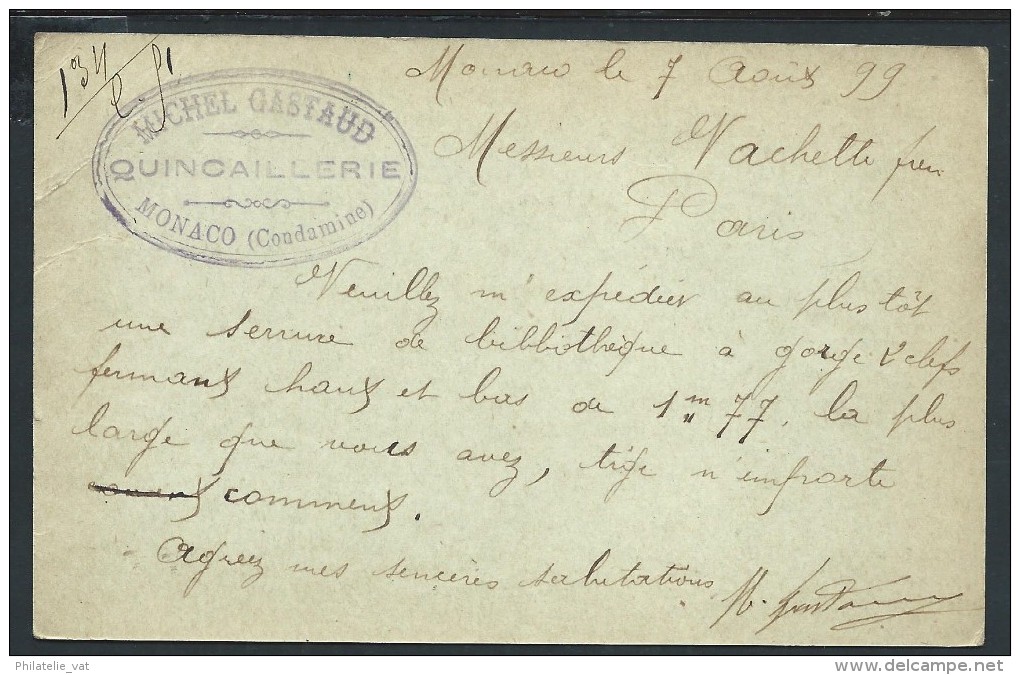 134
MICHEL GASTAUD
QUINCAILLERIE
MONACO (Condamine)
Monaco le 7 Août 99
Messieurs Vachette frères
Paris
Veuillez m'expédier au plus tôt
une serrure de bibliothèque à gorge 2 clefs
fermant haut et bas de 1m77, la plus
large que vous avez, tige n'importe
comment.
Agréez mes sincères salutations
M. Gastaud
Philatelie_vat
www.delcampe.net